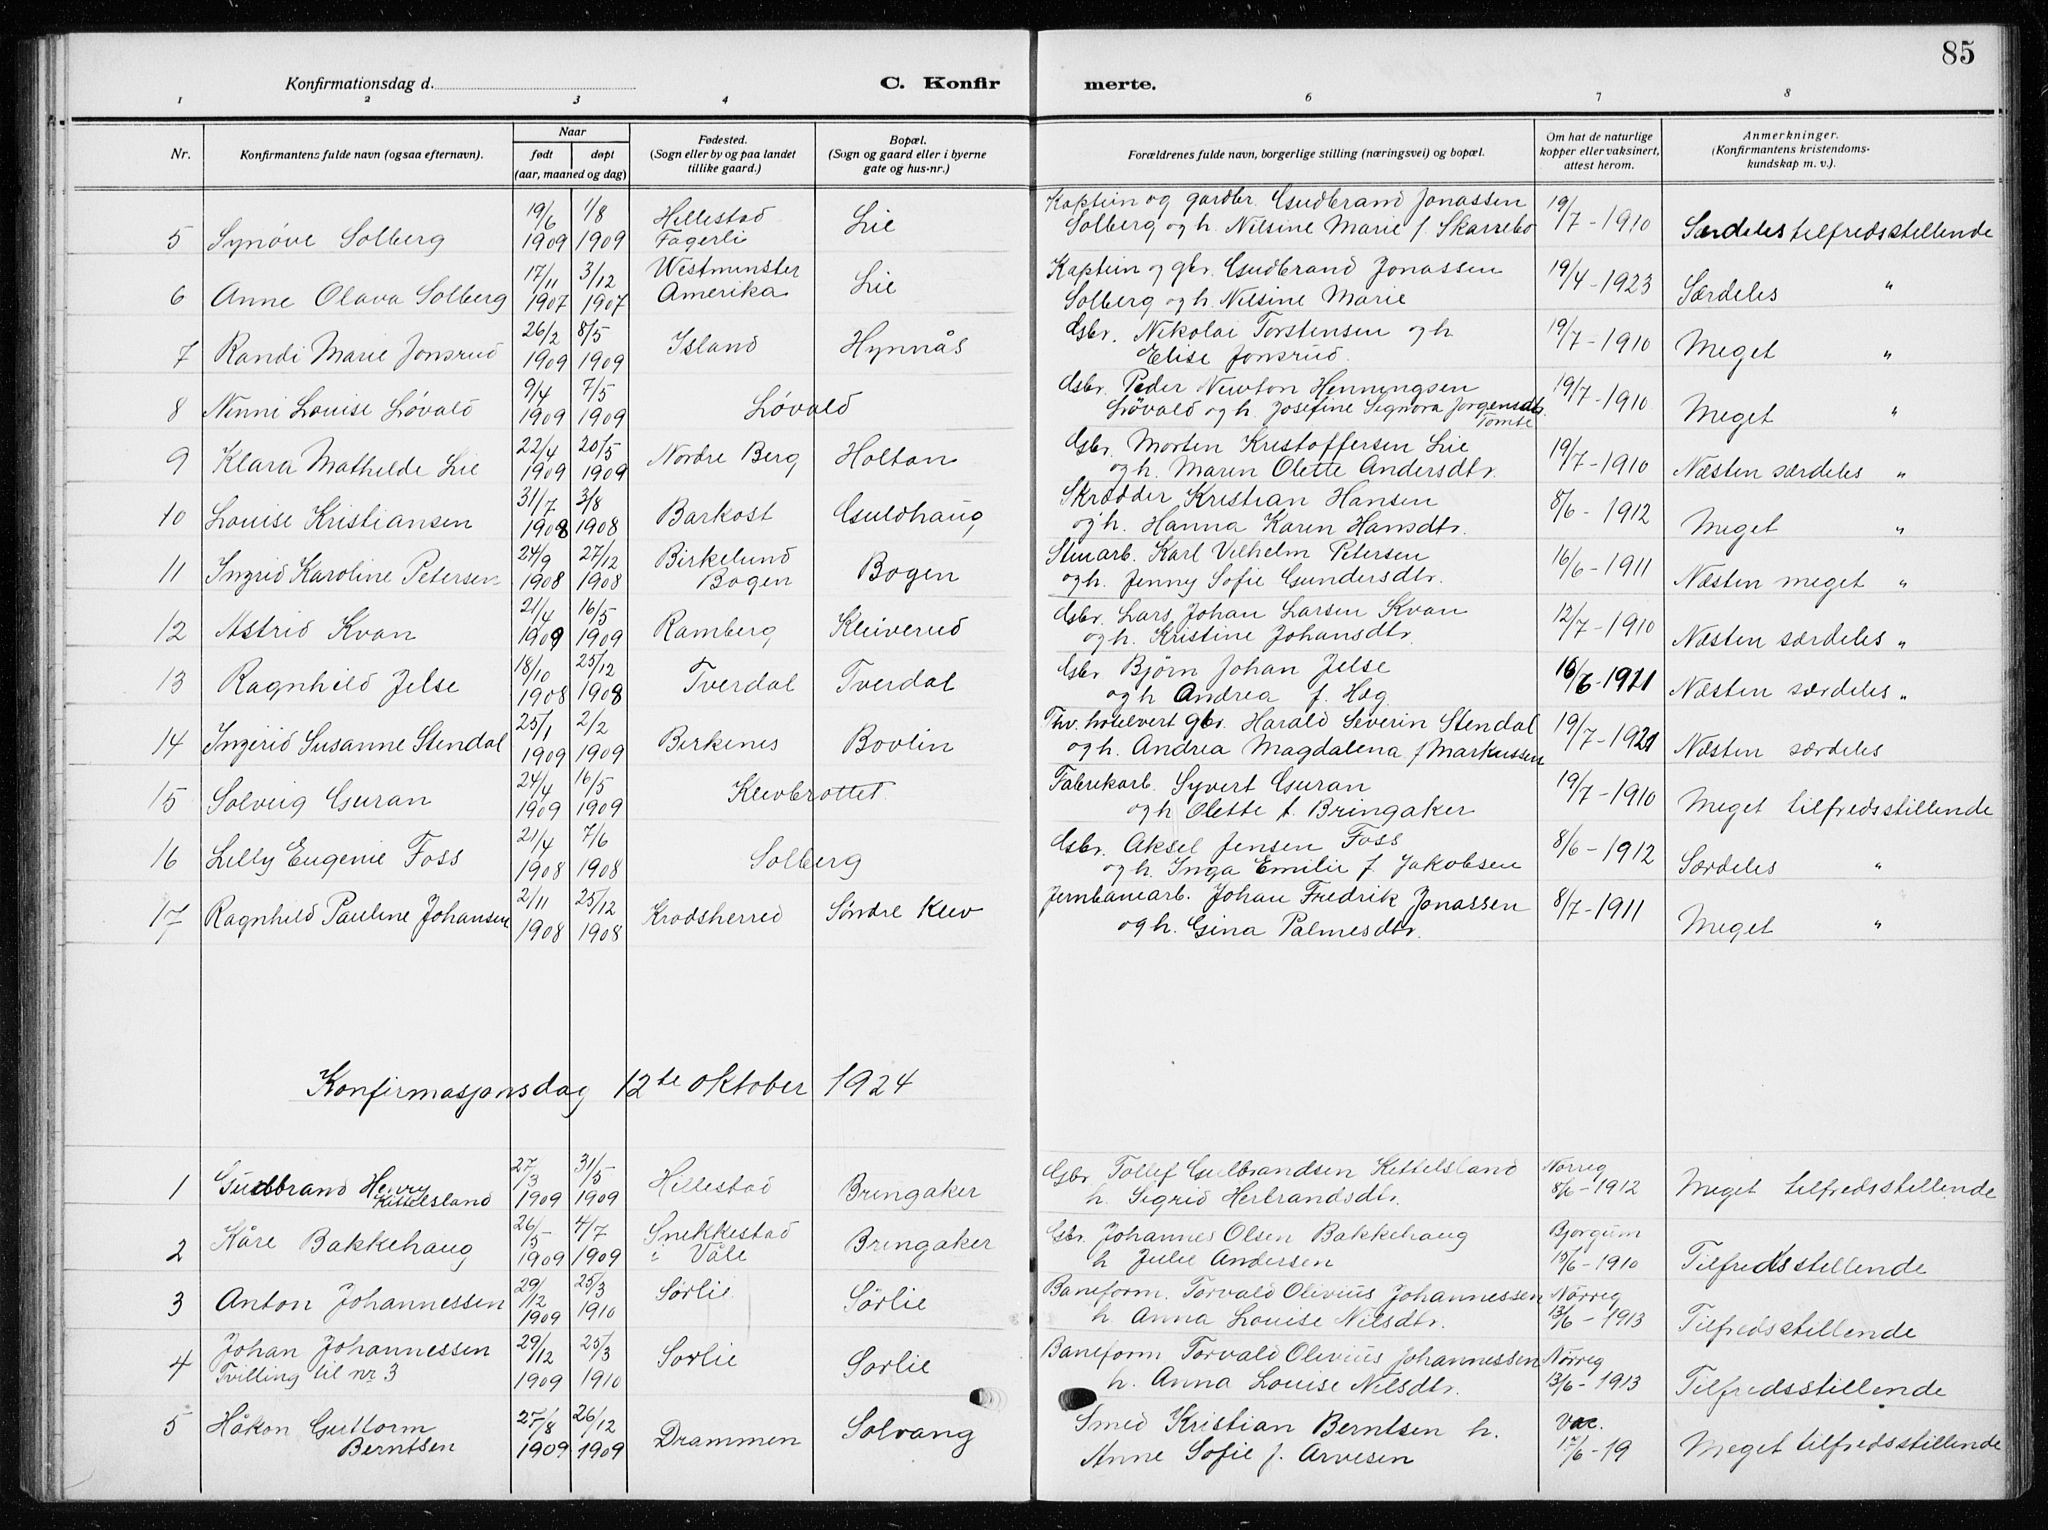 85
Konfirmationsdag d. C. Konfirmerte.
1 2 3 4 5 6 7 8
Nr. Konfirmantens fulde navn (ogsaa efternavn). Naar født døpt (aar, maaned og dag) Fødested. (Sogn eller by og paa landet tillike gaard.) Bopæl. (Sogn og gaard eller i byerne gate og hus-nr.) Forældrenes fulde navn, borgerlige stilling (næringsvei) og bopæl. Om hat de naturlige kopper eller vaksinert, attest herom. Anmerkninger. (Konfirmantens kristendomskundskap m. v.).
5 Synøve Solberg 19/6 1909 1/8 1909 Hillestad Fagerli Lie Kaptein og gardbr. Gudbrand Jonassen Solberg og h. Nilsine Marie f Skarrebo 19/7-1910 Særdeles tilfredsstillende
6 Anne Olava Solberg 17/11 1907 3/12 1907 Westminster Amerika Lie Kaptein og gbr. Gudbrand Jonassen Solberg og h. Nilsine Marie 19/4-1923 Særdeles "
7 Randi Marie Jonsrud 26/2 1909 8/5 1909 Island Hynnås Gbr. Nikolai Torstensen og h Elise Jonsrud. 19/7-1910 Meget "
8 Nenni Louise Løvald 9/4 1909 7/5 1909 Løvald Gbr. Peder Newton Henningsen Løvald og h. Josefine Signora Jørgensdtr. Tomte 19/7-1910 Meget "
9 Klara Mathilde Lie 22/4 1909 20/5 1909 Nordre Berg Holtan Gbr. Morten Kristoffersen Lie og h. Maren Olette Andersdtr. 19/7-1910 Næsten særdeles "
10 Louise Kristiansen 31/7 1908 3/8 1908 Barkost Guldhaug Skrædder Kristian Hansen og h. Hanna Karen Hansdtr. 8/6-1912 Meget "
11 Ingrid Karoline Petersen 24/9 1908 27/12 1908 Birkelund Bogen Bogen Stenarb. Karl Vilhelm Petersen og h. Jenny Sofie Gundersdtr. 16/6-1911 Næsten meget "
12 Astrid Kvan 21/4 1909 16/5 1909 Ramberg Kleiverud Gbr. Lars Johan Larsen Kvan og h. Kristine Johansdtr. 12/7-1910 Næsten særdeles "
13 Ragnhild Jelse 18/10 1908 25/12 1908 Tverdal Tverdal Gbr Bjørn Johan Jelse og h Andrea f. Hæg 16/6-1921 Næsten særdeles "
14 Ingerid Susanne Stendal 25/1 1909 2/2 1909 Birkenes Bovlin Thv. hotelvert gbr. Harald Severin Stendal og h. Andrea Magdalena f Markussen 19/7-1921 Næsten særdeles
15 Solveig Guran 24/4 1909 16/5 1909 Klevbrottet Fabrikarb. Syvert Guran og h Olette f. Bringaker 19/7-1910 Meget tilfredsstillende
16 Lilly Eugenie Foss 21/4 1908 7/6 1908 Solberg Gbr. Aksel Jensen Foss og h. Inga Emilie f Jakobsen 8/6-1912 Særdeles "
17 Ragnhild Pauline Johansen 2/11 1908 25/12 1908 Krodsherred Søndre Klev Jernbanearb. Johan Fredrik Jonassen og h. Gina Palmesdtr. 8/7-1911 Meget "
Konfirmasjonsdag 12te oktober 1924
1 Gudbrand Henry Kittelsland 27/3 1909 31/5 1909 Hillestad Bringaker Gbr. Tollef Gulbrandsen Kittelsland h. Sigrid Herbrandsdtr. Nørreg 8/6-1912 Meget tilfredsstillende
2 Kåre Bakkehaug 26/5 1909 4/7 1909 Snekkestad i Våle Bringaker Gbr. Johannes Olsen Bakkehaug h Julie Andersen Bjorgum 15/6-1910 Tilfredsstillende
3 Anton Johannessen 29/12 1909 25/3 1910 Sørlie Sørlie Baneform. Torvald Olivius Johannessen h. Anna Louise Nilsdtr. Nørreg 13/6-1913 Tilfredsstillende
4 Johan Johannessen Tvilling til nr. 3 29/12 1909 25/3 1910 Sørlie Sørlie Baneform Torvald Olivius Johannessen h. Anna Louise Nilsdtr. Nørreg 13/6-1913 Tilfredsstillende
5 Håkon Guttorm Berntsen 27/8 1909 26/12 1909 Drammen Solvang Smed Kristian Berntsen h. Anne Sofie f. Arvesen vac. 17/6-19 Meget tilfredsstillende